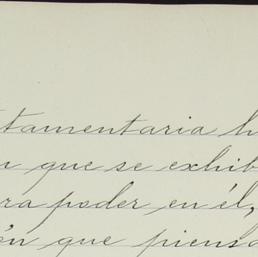 tamentaria h
n que se exhib
ra poder en él,
ón que piensa